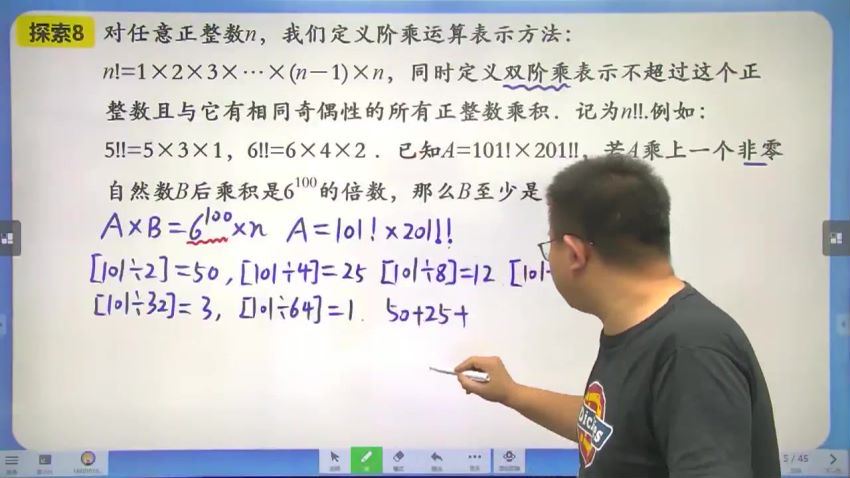 探索8 对任意正整数n，我们定义阶乘运算表示方法：
n!=1×2×3×⋯×(n－1)×n，同时定义双阶乘表示不超过这个正
整数且与它有相同奇偶性的所有正整数乘积．记为n!!.例如：
5!!=5×3×1，6!!=6×4×2．已知A=101!×201!!，若A乘上一个非零
自然数B后乘积是6^100的倍数，那么B至少是
A×B=6^100×n A=101!×201!!
[101÷2]=50, [101÷4]=25 [101÷8]=12 [101
[101÷32]=3, [101÷64]=1. 50+25+
Dickies
5 / 45